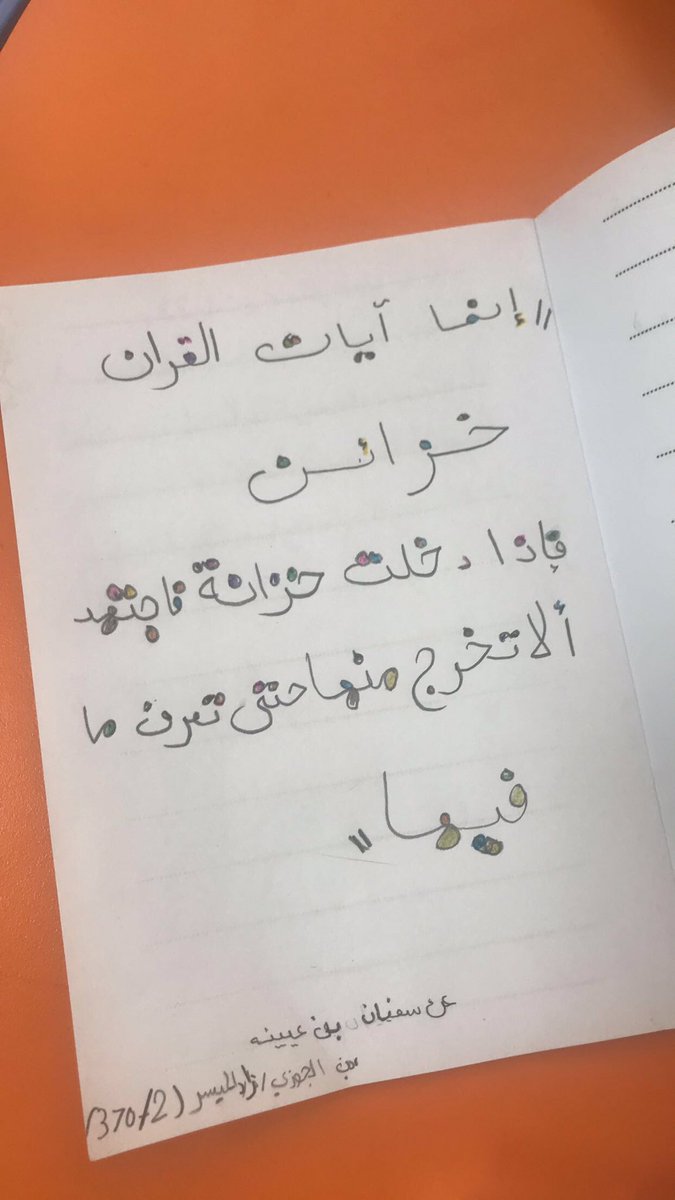 "إنما آيات القران
خزائن
فإذا دخلت خزانة فاجتهد
ألا تخرج منها حتى تعرف ما
فيها"
عن سفيان بن عيينه
بن الجوزي/زاد الميسر (370/2)